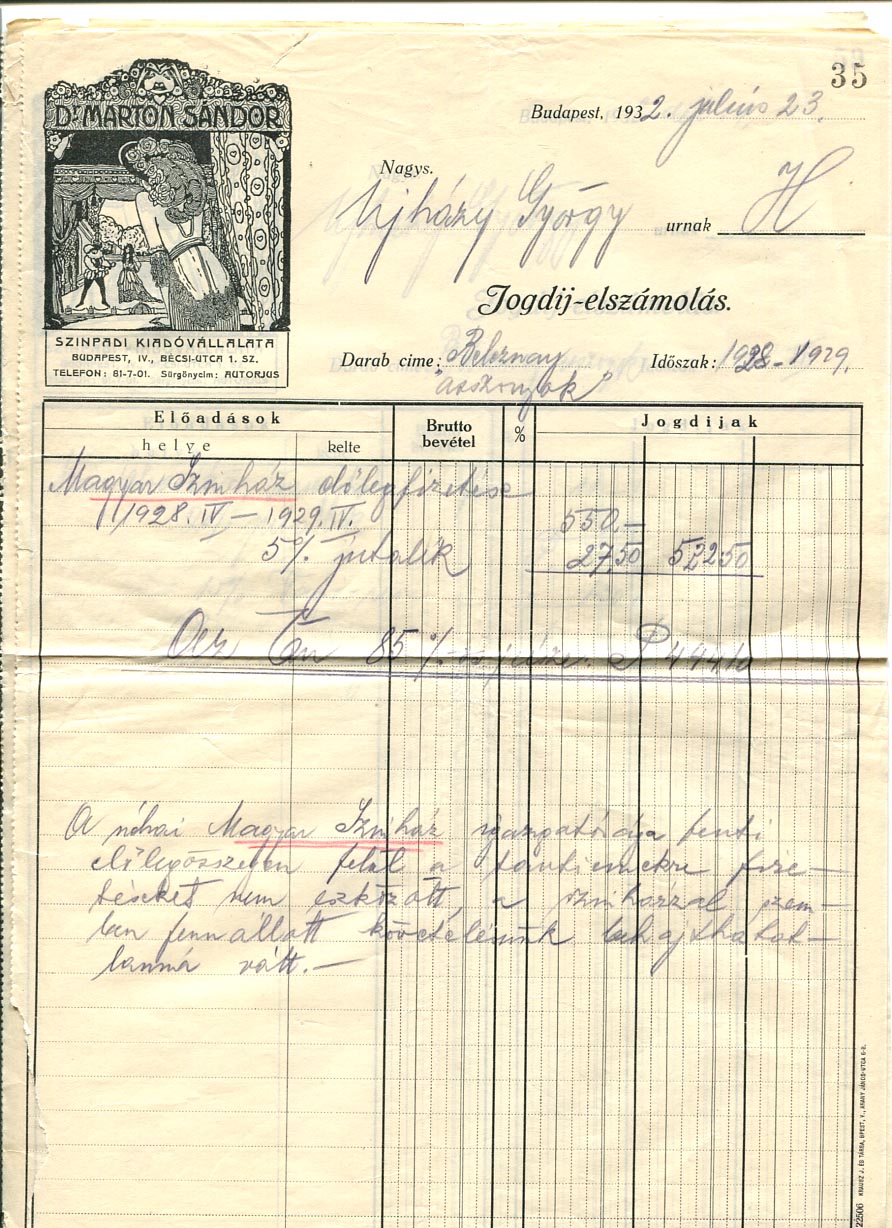 35
Dr MARTON SÁNDOR
Budapest, 1932. július 23.
Nagys.
Ujházy György urnak H
Jogdij-elszámolás.
SZINPADI KIADÓVÁLLALATA
BUDAPEST, IV., BÉCSI-UTCA 1. SZ.
TELEFON: 81-7-01. Sürgönycím: AUTORJUS
Darab cime: Időszak: 1928-1929.
asszonyok"
Előadások Brutto bevétel % Jogdijak
helye kelte
Magyar Szinház előlegfizetése
1928.IV – 1929.IV. 550.–
5% jutalék 27.50 522.50
Ön 85 % P 444.10
A néhai Magyar Szinház igazgatósága fenti
előlegösszegen felül a tantiemekre fize–
téseket nem eszközölt, a szinházzal szem–
ben fennállott követelésünk behajthatat–
lanná vált.–
22506 KRAUSZ J. ÉS TÁRSA, BPEST, V., ARANY JÁNOS-UTCA 6-8.